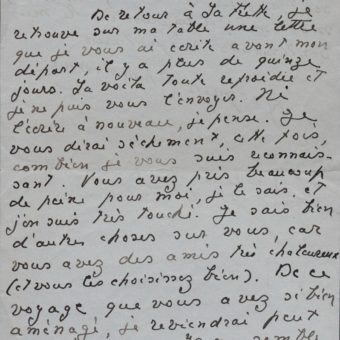 De retour à La Frette, je
retrouve sur ma table une lettre
que je vous ai écrite avant mon
départ, il y a plus de quinze
jours. La voilà toute refroidie et
je ne puis vous l'envoyer. Ni
l'écrire à nouveau, je pense. Je
vous dirai sèchement, cette fois,
combien je vous suis reconnais-
sant. Vous avez pris beaucoup
de peine pour moi, je le sais, et
j'en suis très touché. Je sais bien
d'autres choses sur vous, car
vous avez des amis très chaleureux
(et vous les choisissez bien). De ce
voyage que vous avez si bien
aménagé, je reviendrai peut
semble